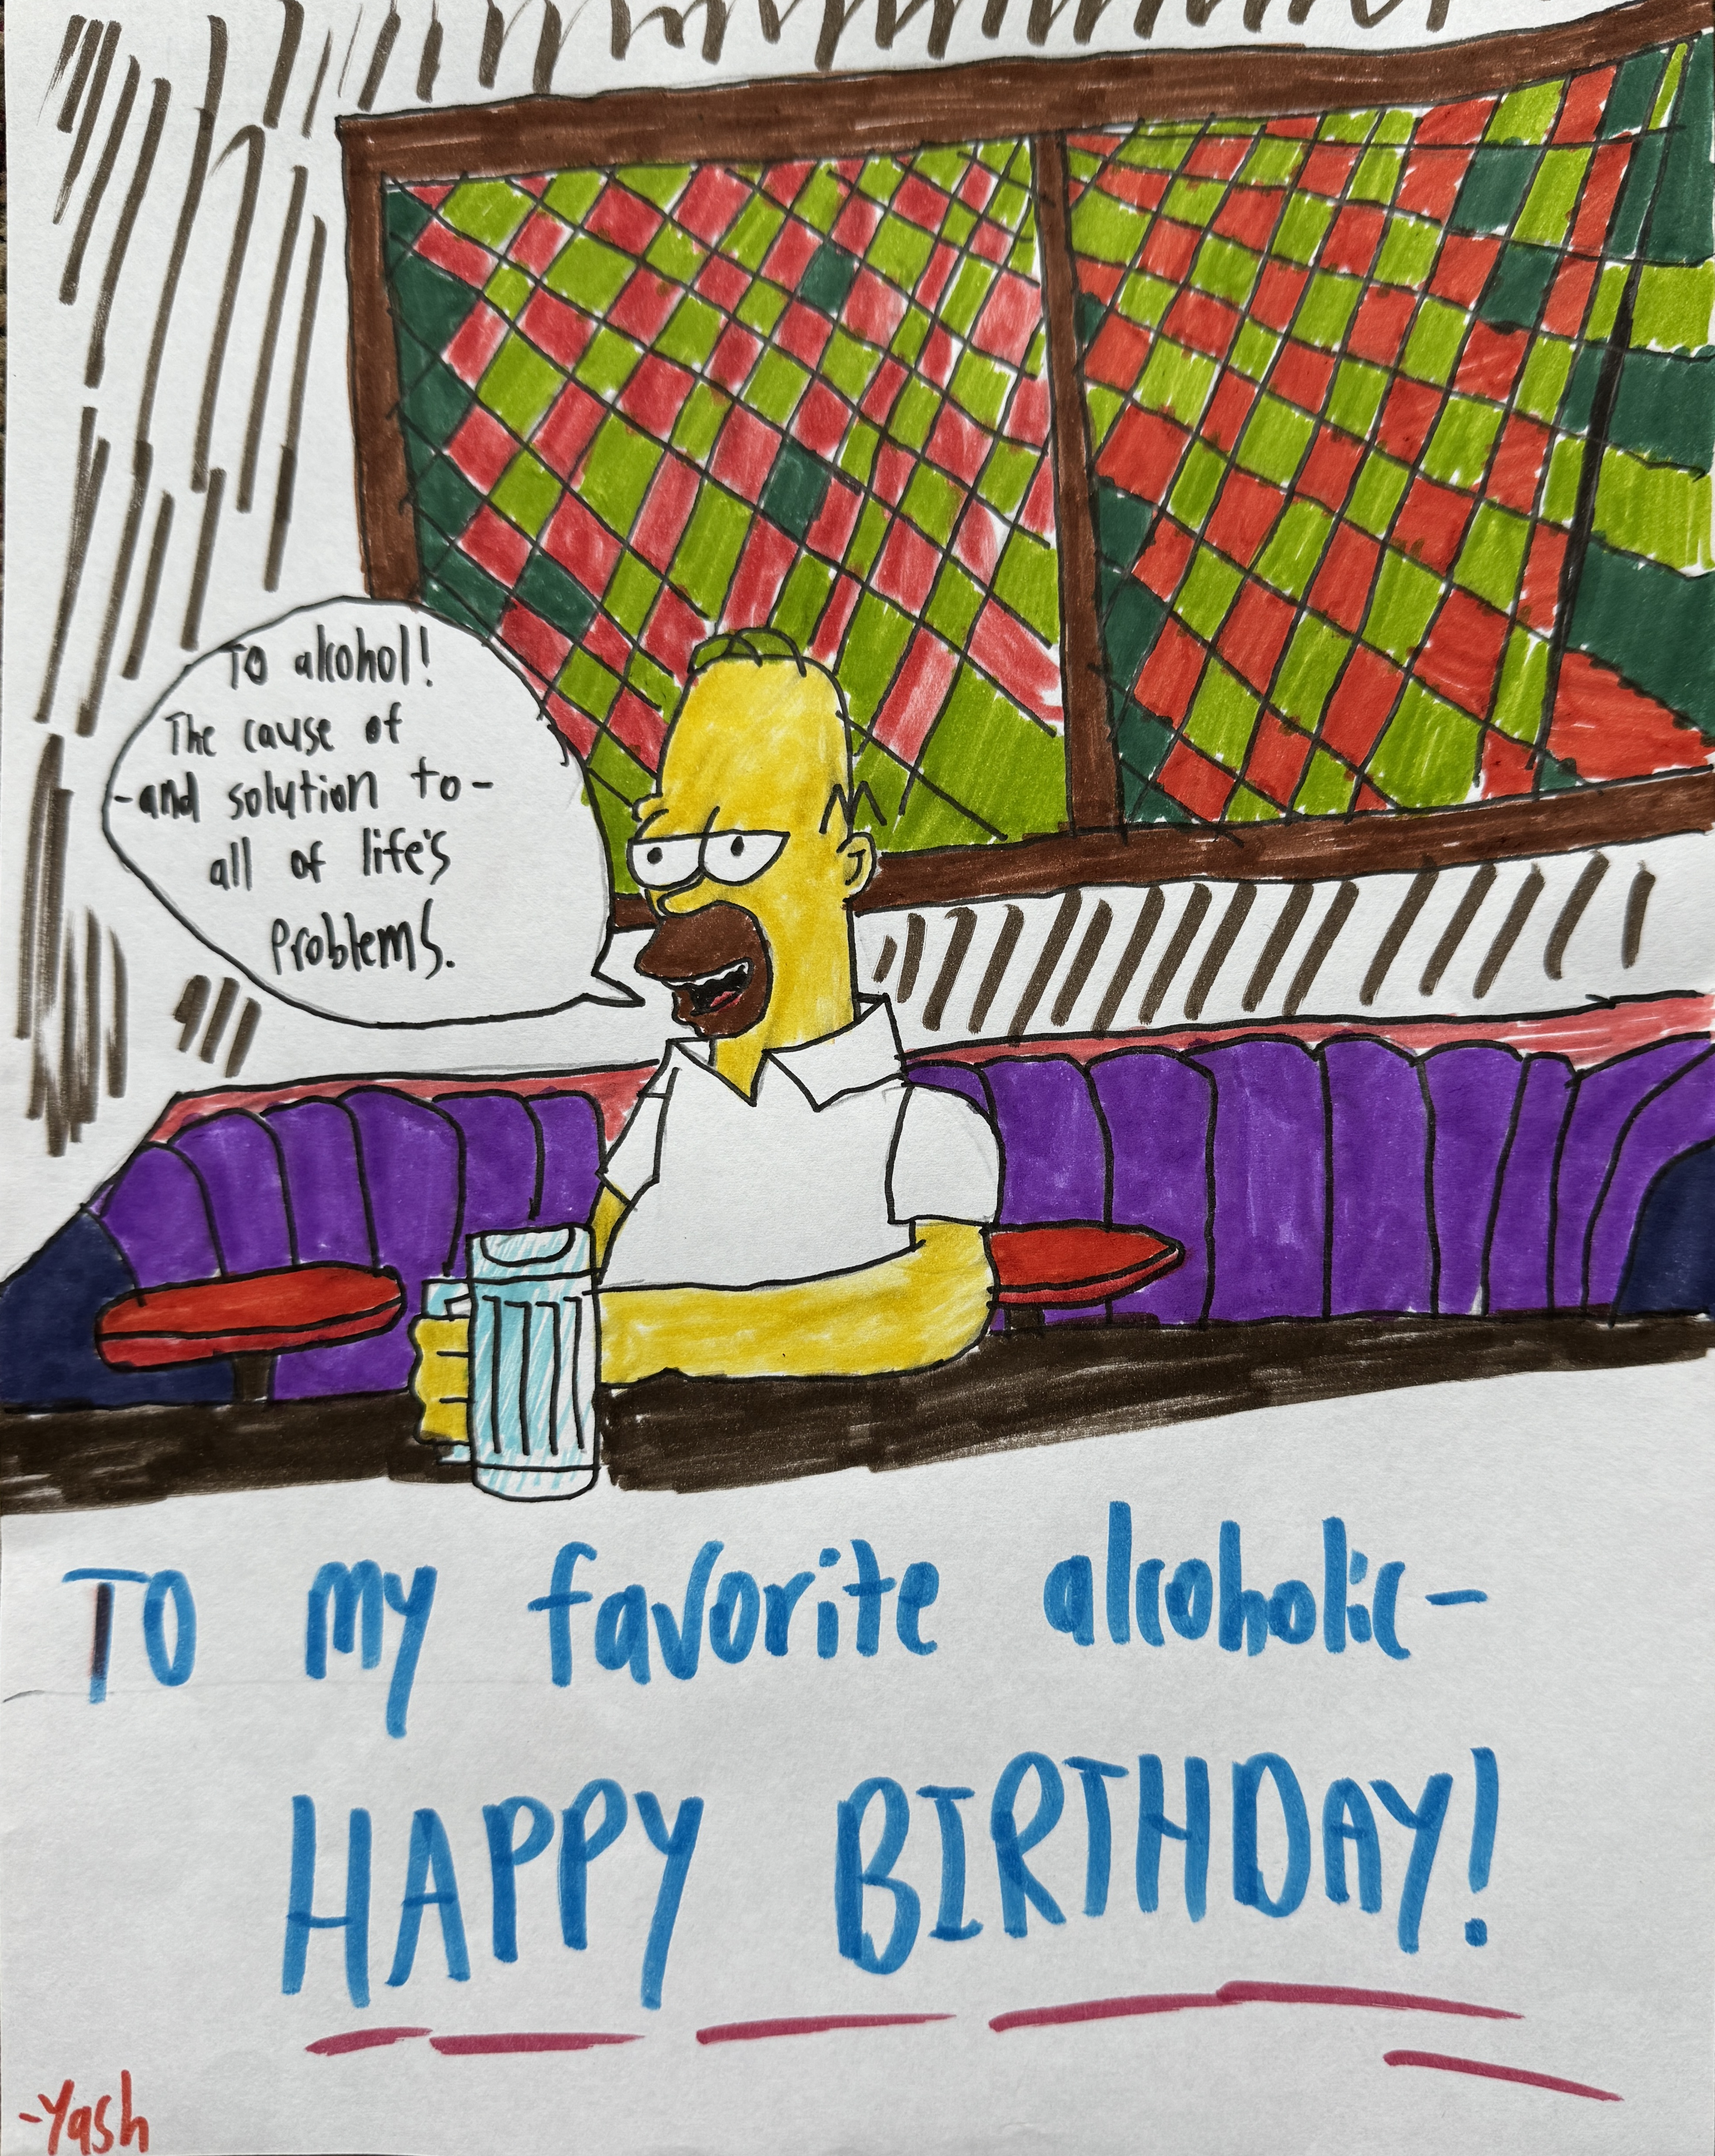 To alcohol!
The cause of
-and solution to-
all of life's
Problems.
To my favorite alcoholic-
HAPPY BIRTHDAY!
-Yash